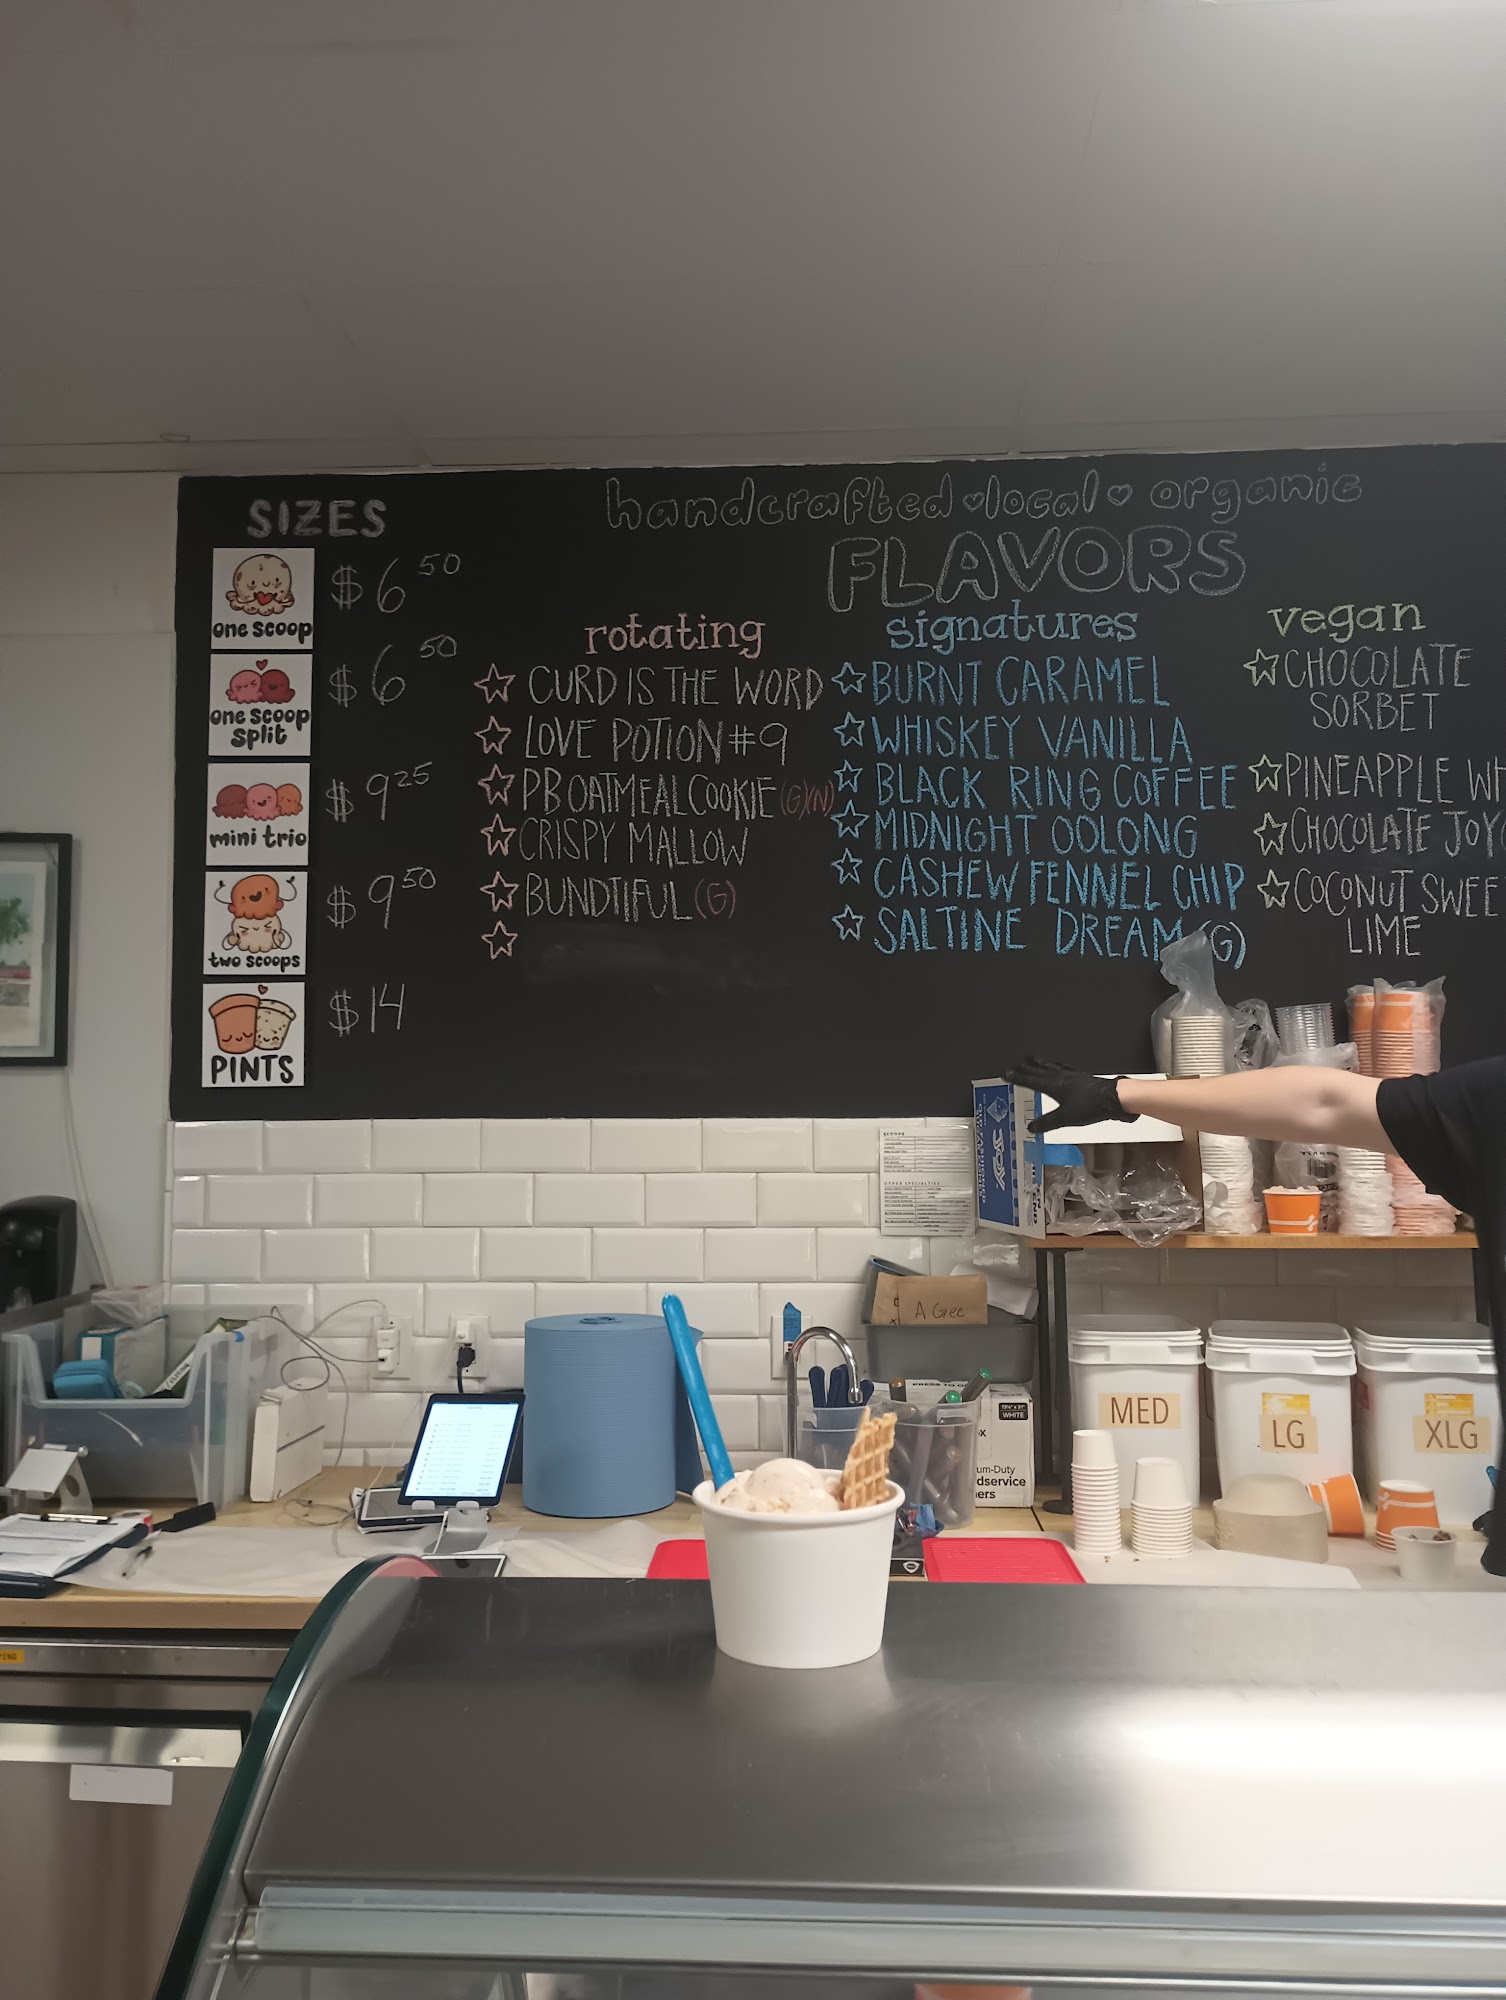 SIZES
one scoop
$6 50
one scoop
split
$6 50
mini trio
$9 25
two scoops
$9 50
PINTS
$14
handcrafted local organic
FLAVORS
rotating
CURD IS THE WORD
LOVE POTION #9
PB OATMEAL COOKIE (G)(N)
CRISPY MALLOW
BUNDTIFUL (G)
signatures
BURNT CARAMEL
WHISKEY VANILLA
BLACK RING COFFEE
MIDNIGHT OOLONG
CASHEW FENNEL CHIP
SALTINE DREAM (G)
vegan
CHOCOLATE
SORBET
PINEAPPLE WH
CHOCOLATE JOY
COCONUT SWEE
LIME
SCOOPS
OTHER SPECIALTIES
JOY
A Gree
PRESS TO
WHITE
um-Duty
dservice
ers
MED
LG
XLG